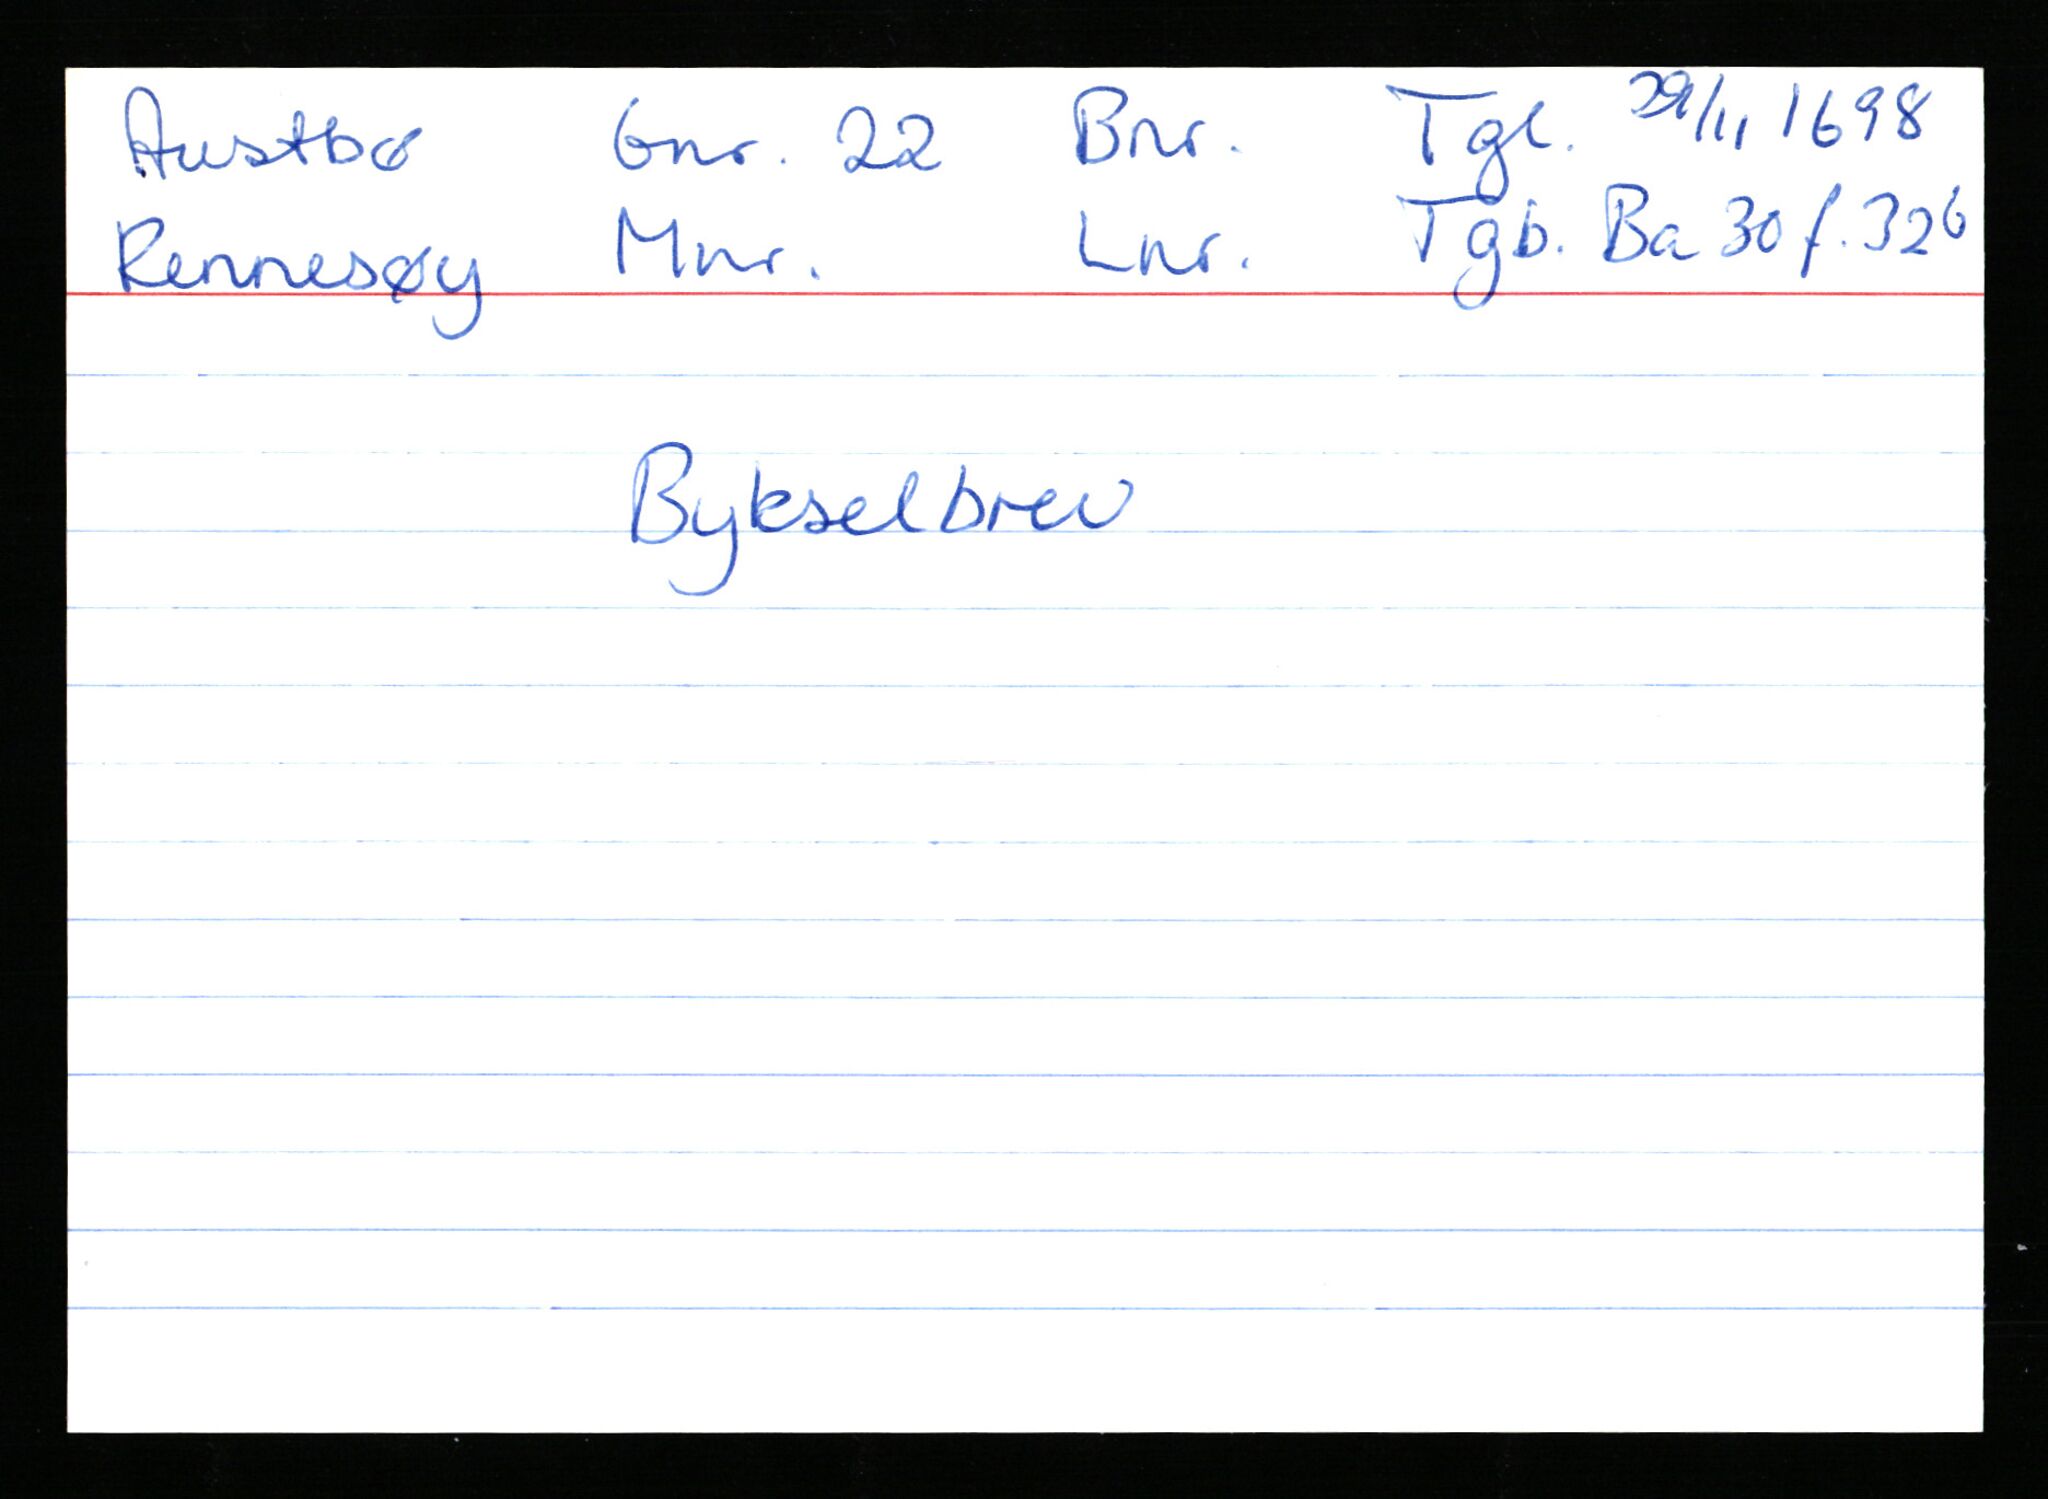 Austbø Gnr. 22 Bnr. Tgl. 29/11 1698
Rennesøy Mnr. Lnr. Tgb. Ba 30 f. 326
Bykselbrev